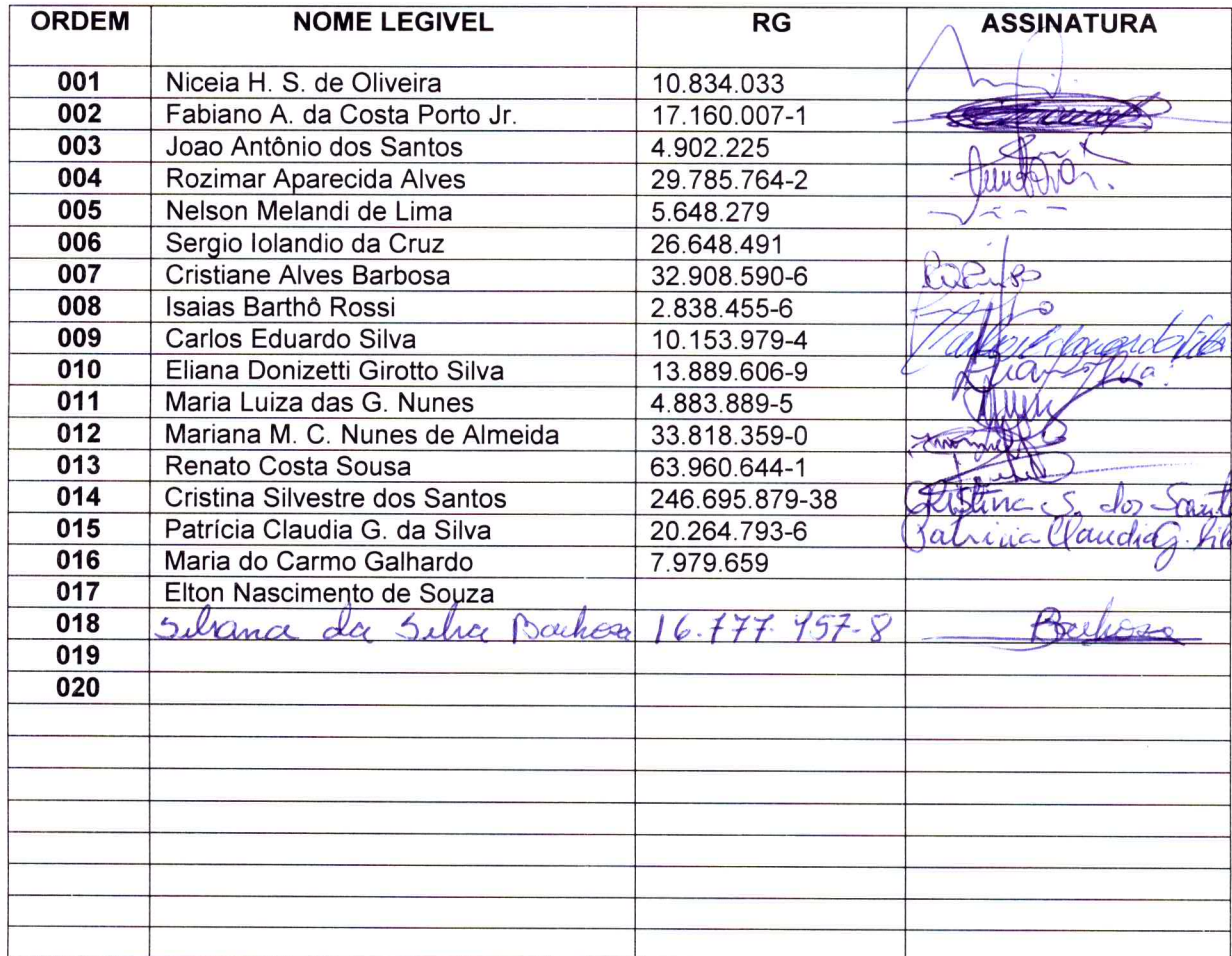 ORDEM NOME LEGIVEL RG ASSINATURA
001 Niceia H. S. de Oliveira 10.834.033
002 Fabiano A. da Costa Porto Jr. 17.160.007-1
003 Joao Antônio dos Santos 4.902.225
004 Rozimar Aparecida Alves 29.785.764-2
005 Nelson Melandi de Lima 5.648.279
006 Sergio Iolandio da Cruz 26.648.491
007 Cristiane Alves Barbosa 32.908.590-6
008 Isaias Barthô Rossi 2.838.455-6
009 Carlos Eduardo Silva 10.153.979-4
010 Eliana Donizetti Girotto Silva 13.889.606-9
011 Maria Luiza das G. Nunes 4.883.889-5
012 Mariana M. C. Nunes de Almeida 33.818.359-0
013 Renato Costa Sousa 63.960.644-1
014 Cristina Silvestre dos Santos 246.695.879-38 Cristina S. dos Sant
015 Patrícia Claudia G. da Silva 20.264.793-6 Patricia Claudia G. Sil
016 Maria do Carmo Galhardo 7.979.659
017 Elton Nascimento de Souza
018 da Silva Barbosa Barbosa
019
020